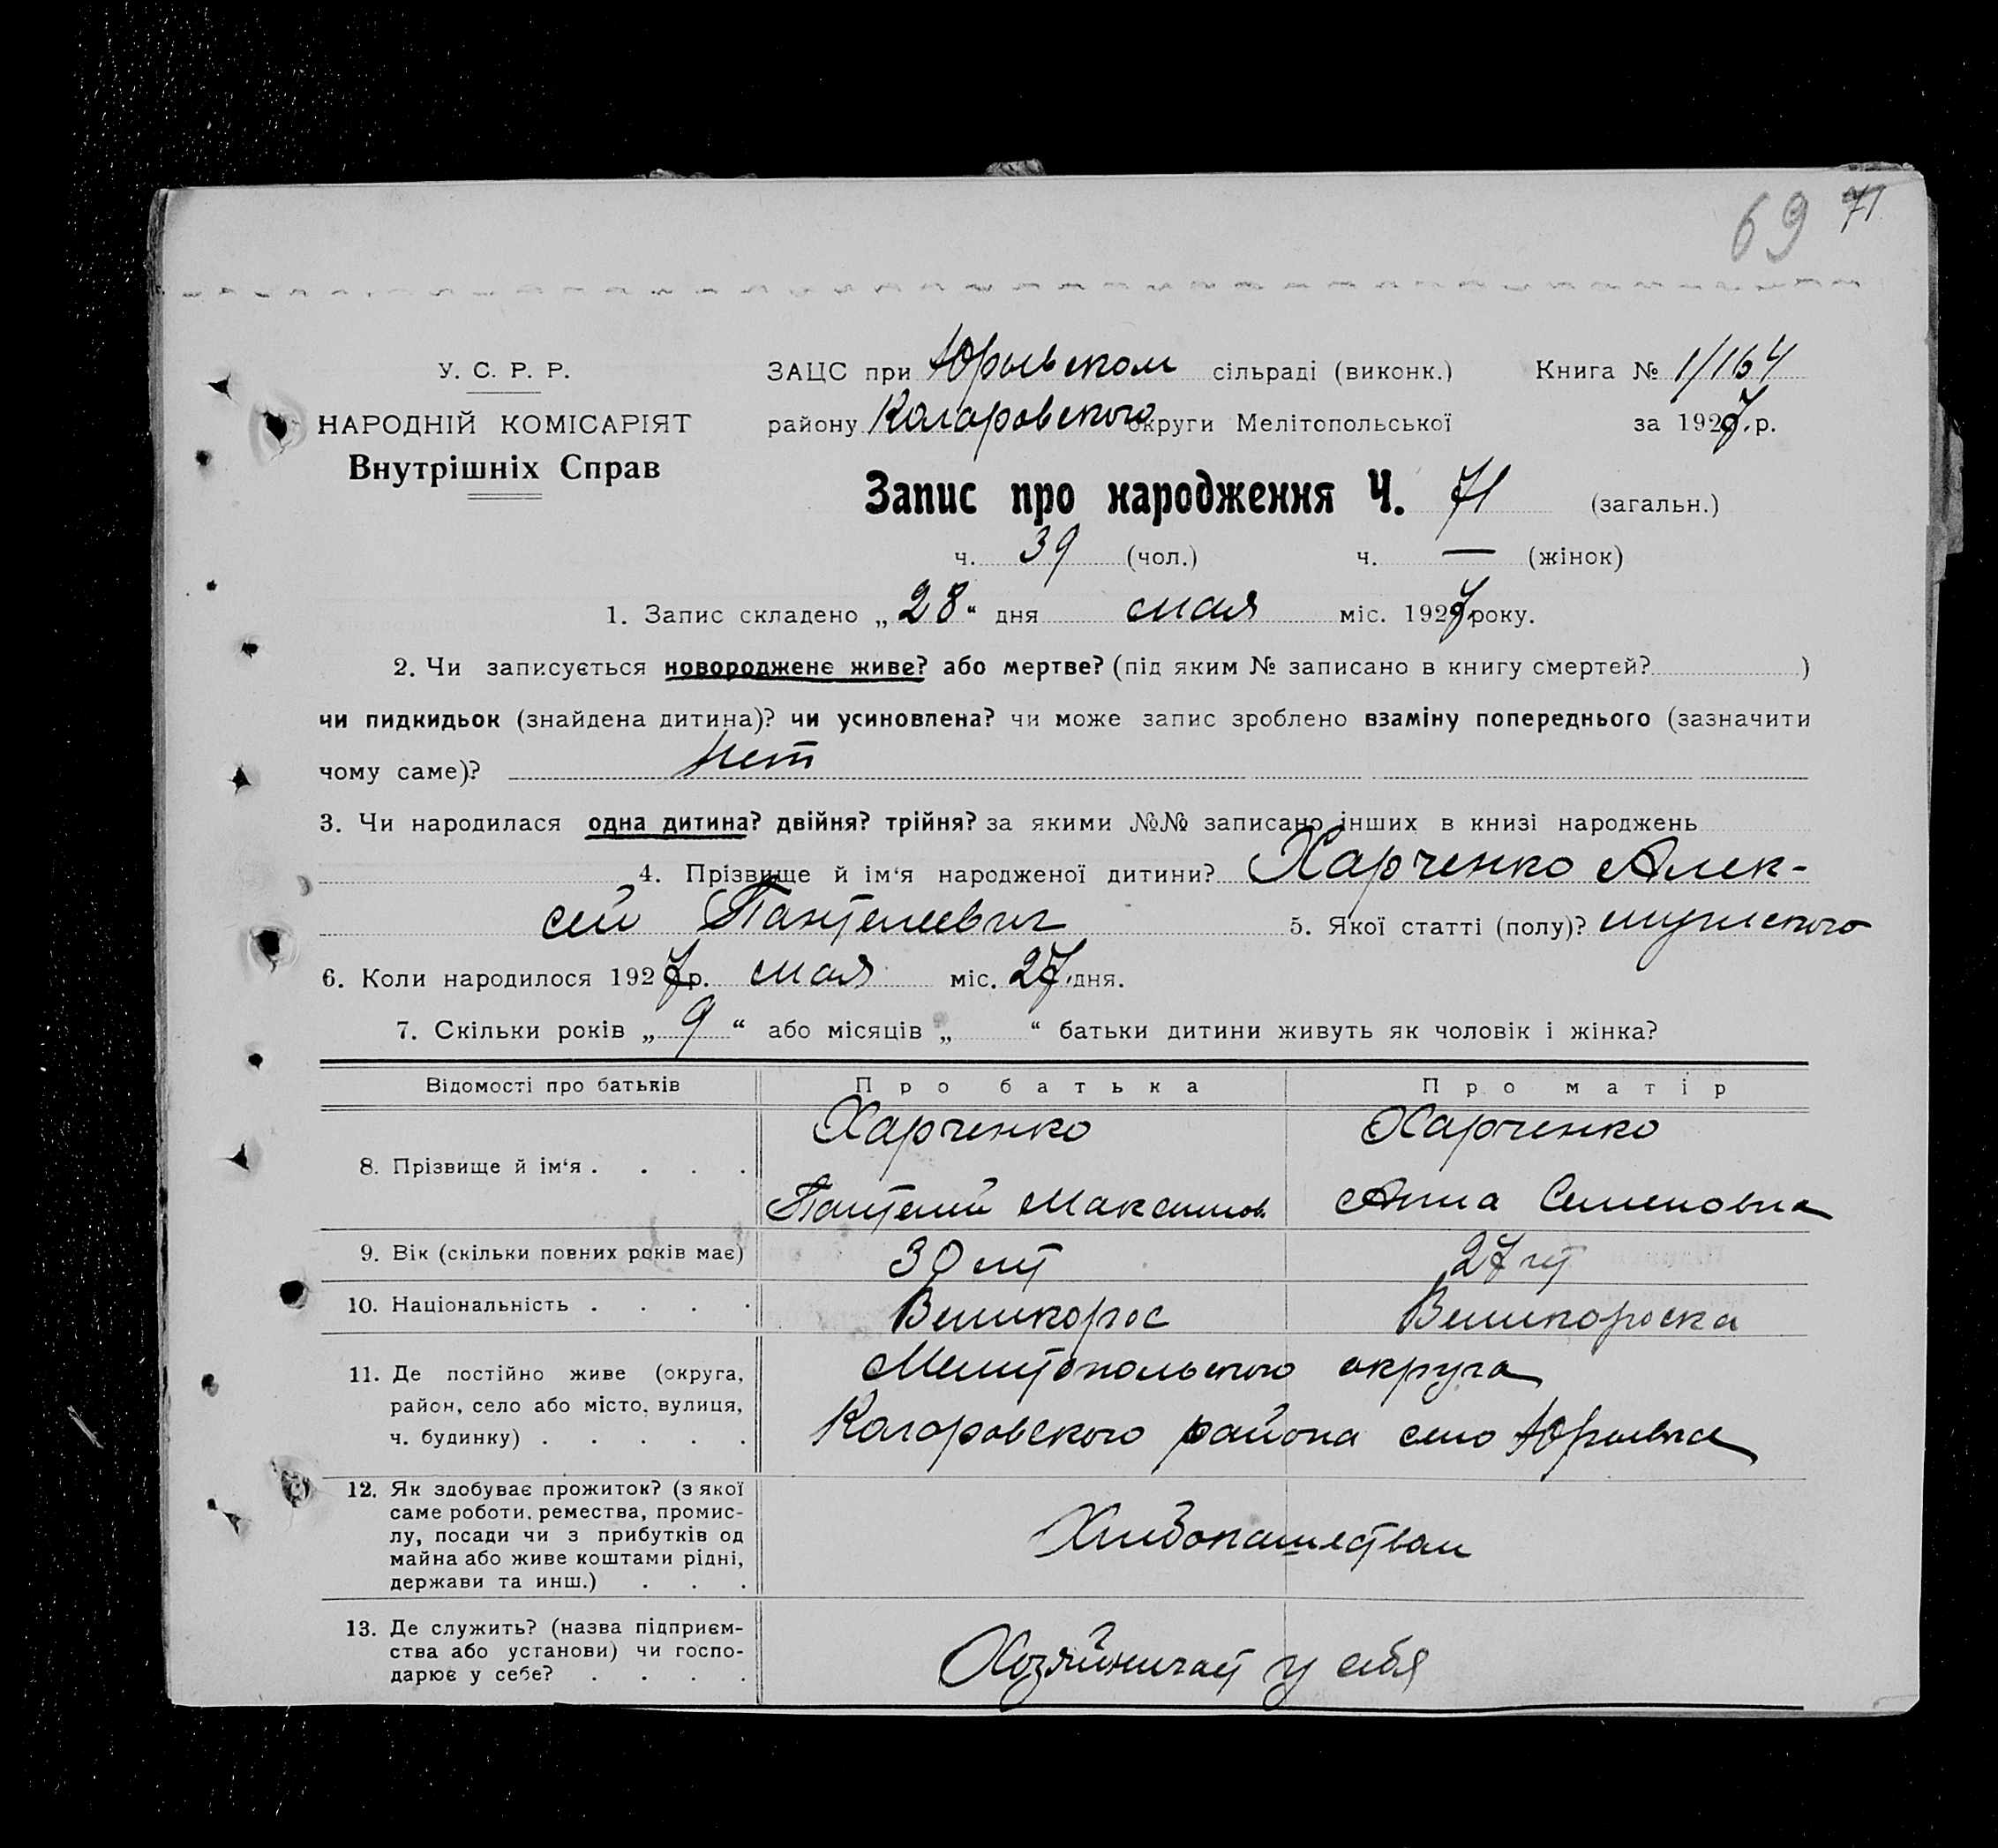 69 71
У. С. Р. Р.
НАРОДНІЙ КОМІСАРІЯТ
Внутрішніх Справ
ЗАЦС при Юрьевском сільраді (виконк.) Книга № 1/164
району Коларовского округи Мелітопольської за 1927 р.
Запис про народження Ч. 71 (загальн.)
ч. 39 (чол.) ч. — (жінок)
1. Запис складено „28“ дня мая міс. 1927 року.
2. Чи записується новороджене живе? або мертве? (під яким № записано в книгу смертей? )
чи пидкидьок (знайдена дитина)? чи усиновлена? чи може запис зроблено взаміну попереднього (зазначити
чому саме)? нет
3. Чи народилася одна дитина? двійня? трійня? за якими №№ записано інших в книзі народжень
4. Прізвище й ім‘я народженої дитини? Харченко Алек-
сей Пантелеевич 5. Якої статті (полу)? мужского
6. Коли народилося 1927 р. мая міс. 27 дня.
7. Скільки років „9“ або місяців „ “ батьки дитини живуть як чоловік і жінка?
Відомості про батьків Про батька Про матір
8. Прізвище й ім‘я . . . . Харченко Харченко
Пантелей Максимов. Анна Семеновна
9. Вік (скільки повних років має) 30 лет 27 лет
10. Національність . . . . Великорос Великороска
11. Де постійно живе (округа,
район, село або місто, вулиця,
ч. будинку) . . . . .
Мелитопольского округа
Коларовского района село Юрьевка
12. Як здобуває прожиток? (з якої
саме роботи, ремества, промис-
лу, посади чи з прибутків од
майна або живе коштами рідні,
держави та инш.) . . .
Хлебопашеством
13. Де служить? (назва підприєм-
ства або установи) чи госпо-
дарює у себе? . . . .
Хозяйничает у себя